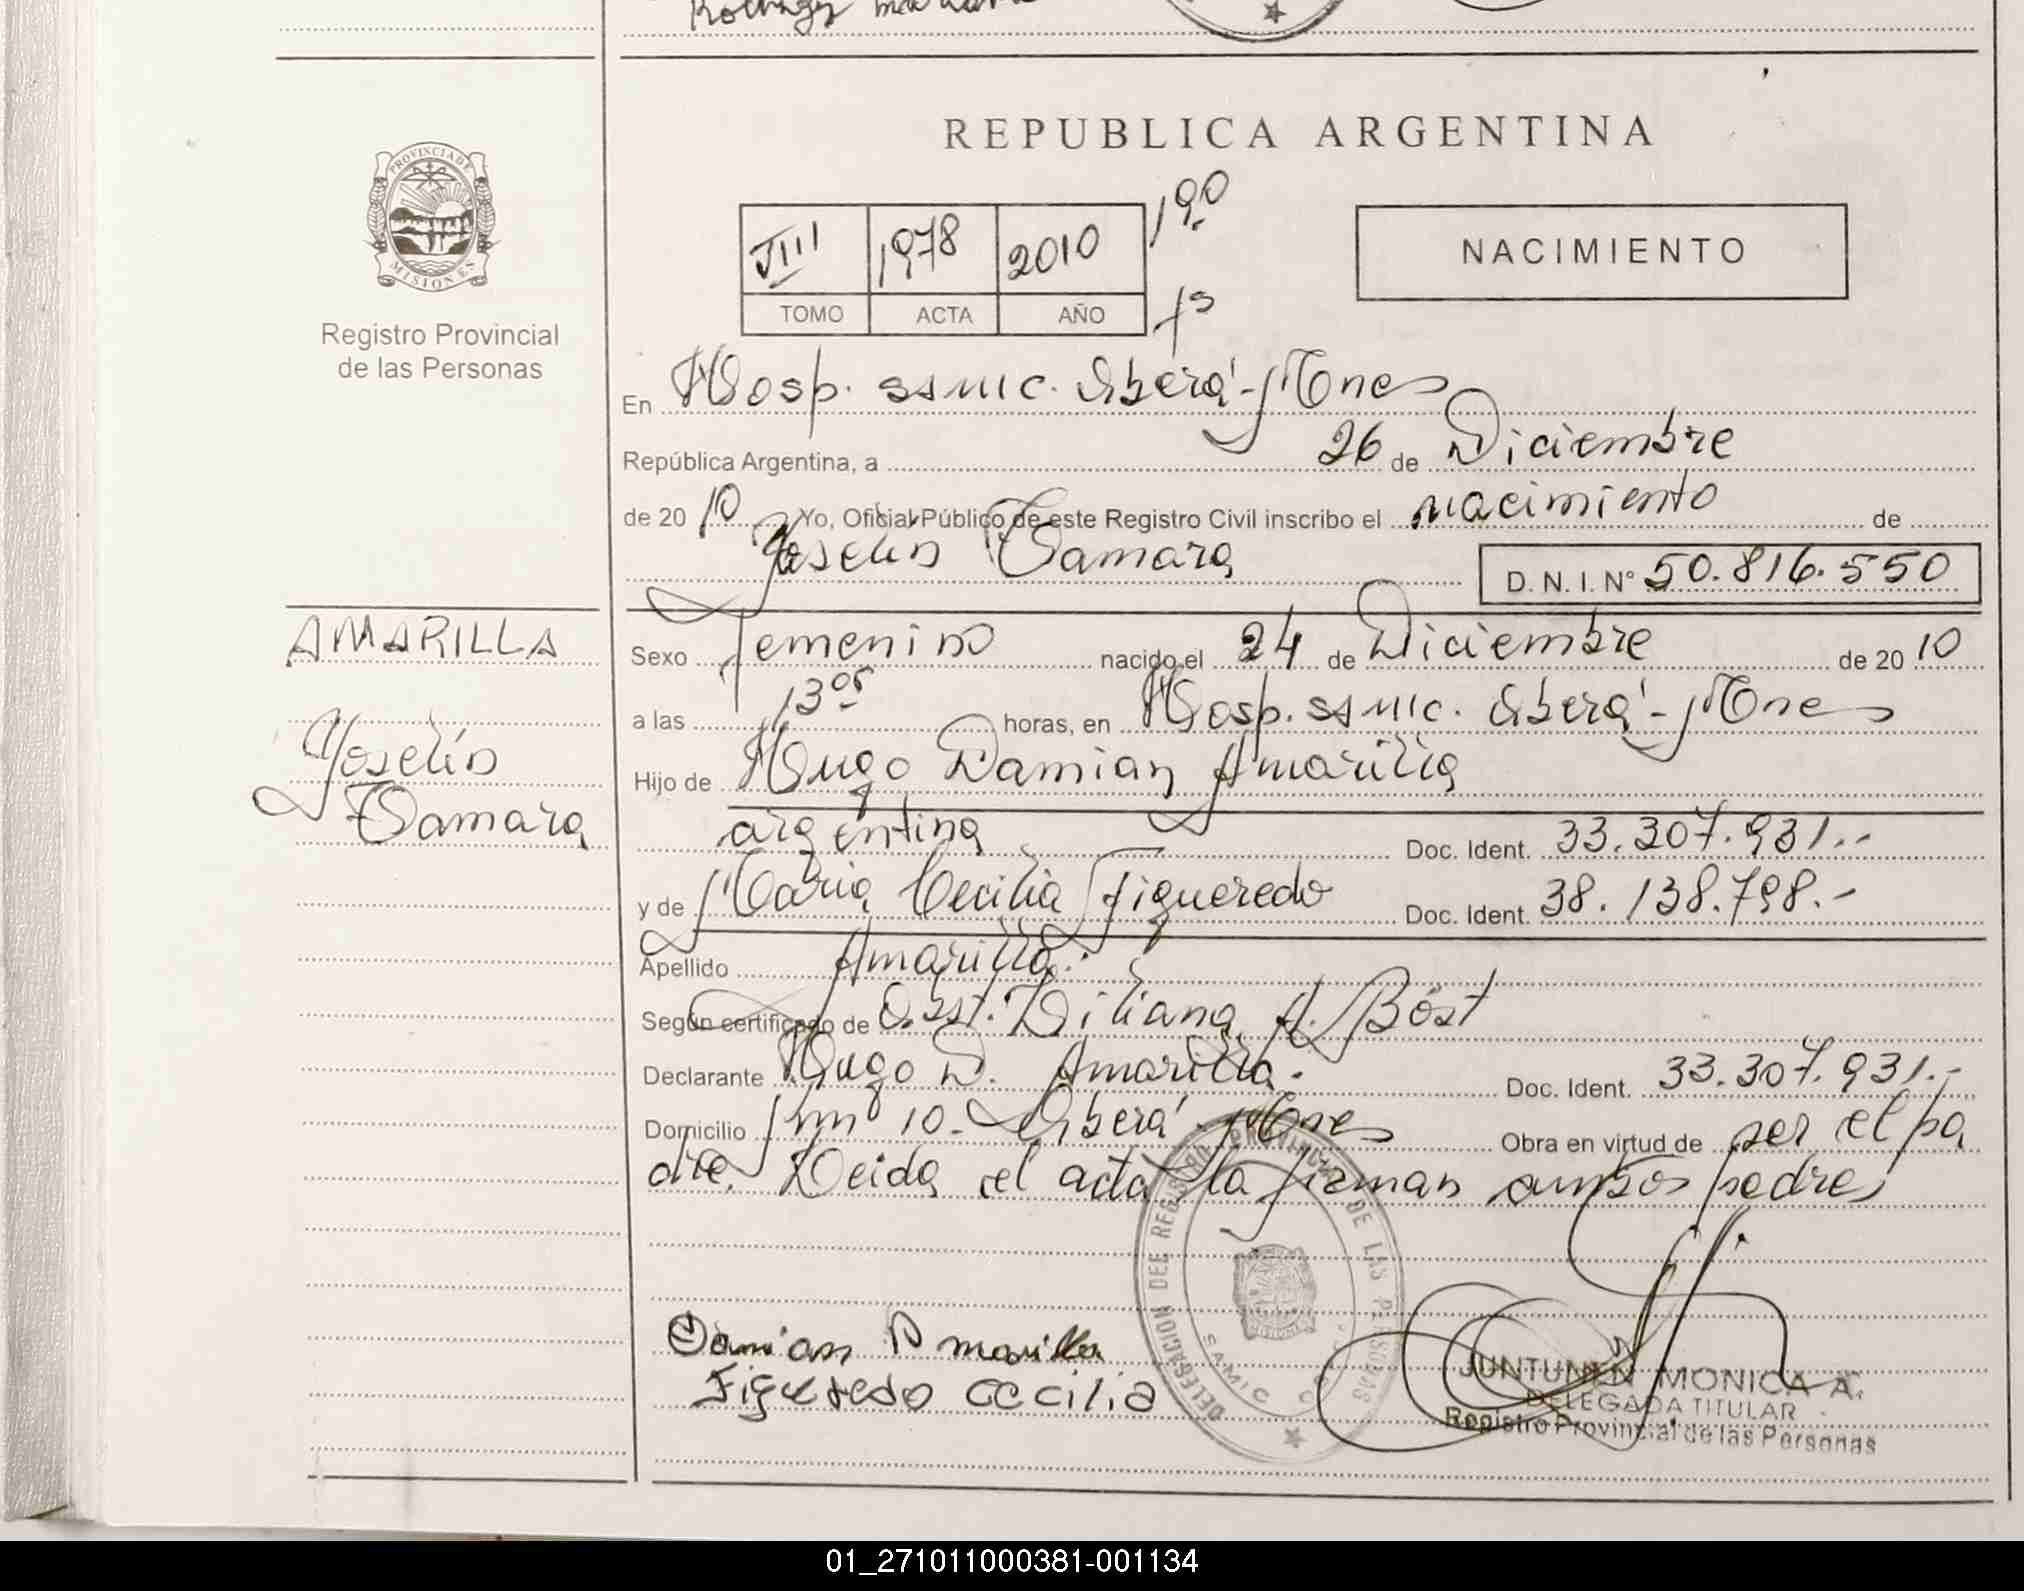 REPUBLICA ARGENTINA
PROVINCIA DE
MISIONES
Registro Provincial
de las Personas
VIII 1978 2010 190
TOMO ACTA AÑO fs
NACIMIENTO
En Hosp. SAMIC. Oberá - Mnes
República Argentina, a 26 de Diciembre
de 20 10 Yo, Oficial Público de este Registro Civil inscribo el nacimiento de
Yoselín Tamara D. N. I. N° 50.816.550
AMARILLA
Yoselín
Tamara
Sexo femenino nacido el 24 de Diciembre de 20 10
a las 13 05 horas, en Hosp. SAMIC. Oberá - Mnes
Hijo de Hugo Damian Amarilla
argentina Doc. Ident. 33.307.931.--
y de Maria Cecilia Figueredo Doc. Ident. 38.138.798.-
Apellido Amarilla.
Según certificado de Obst. Liliana A. Bóst
Declarante Hugo D. Amarilla. Doc. Ident. 33.307.931.-
Domicilio Km 10. Oberá Mnes Obra en virtud de ser el pa
dre. Leida el acta la firman ambos padres
Damian Amarilla
Figueredo Cecilia
DELEGACION DEL REGISTRO PROVINCIAL DE LAS PERSONAS
SAMIC
JUNTUNEN MONICA A.
DELEGADA TITULAR
Registro Provincial de las Personas
01_271011000381-001134